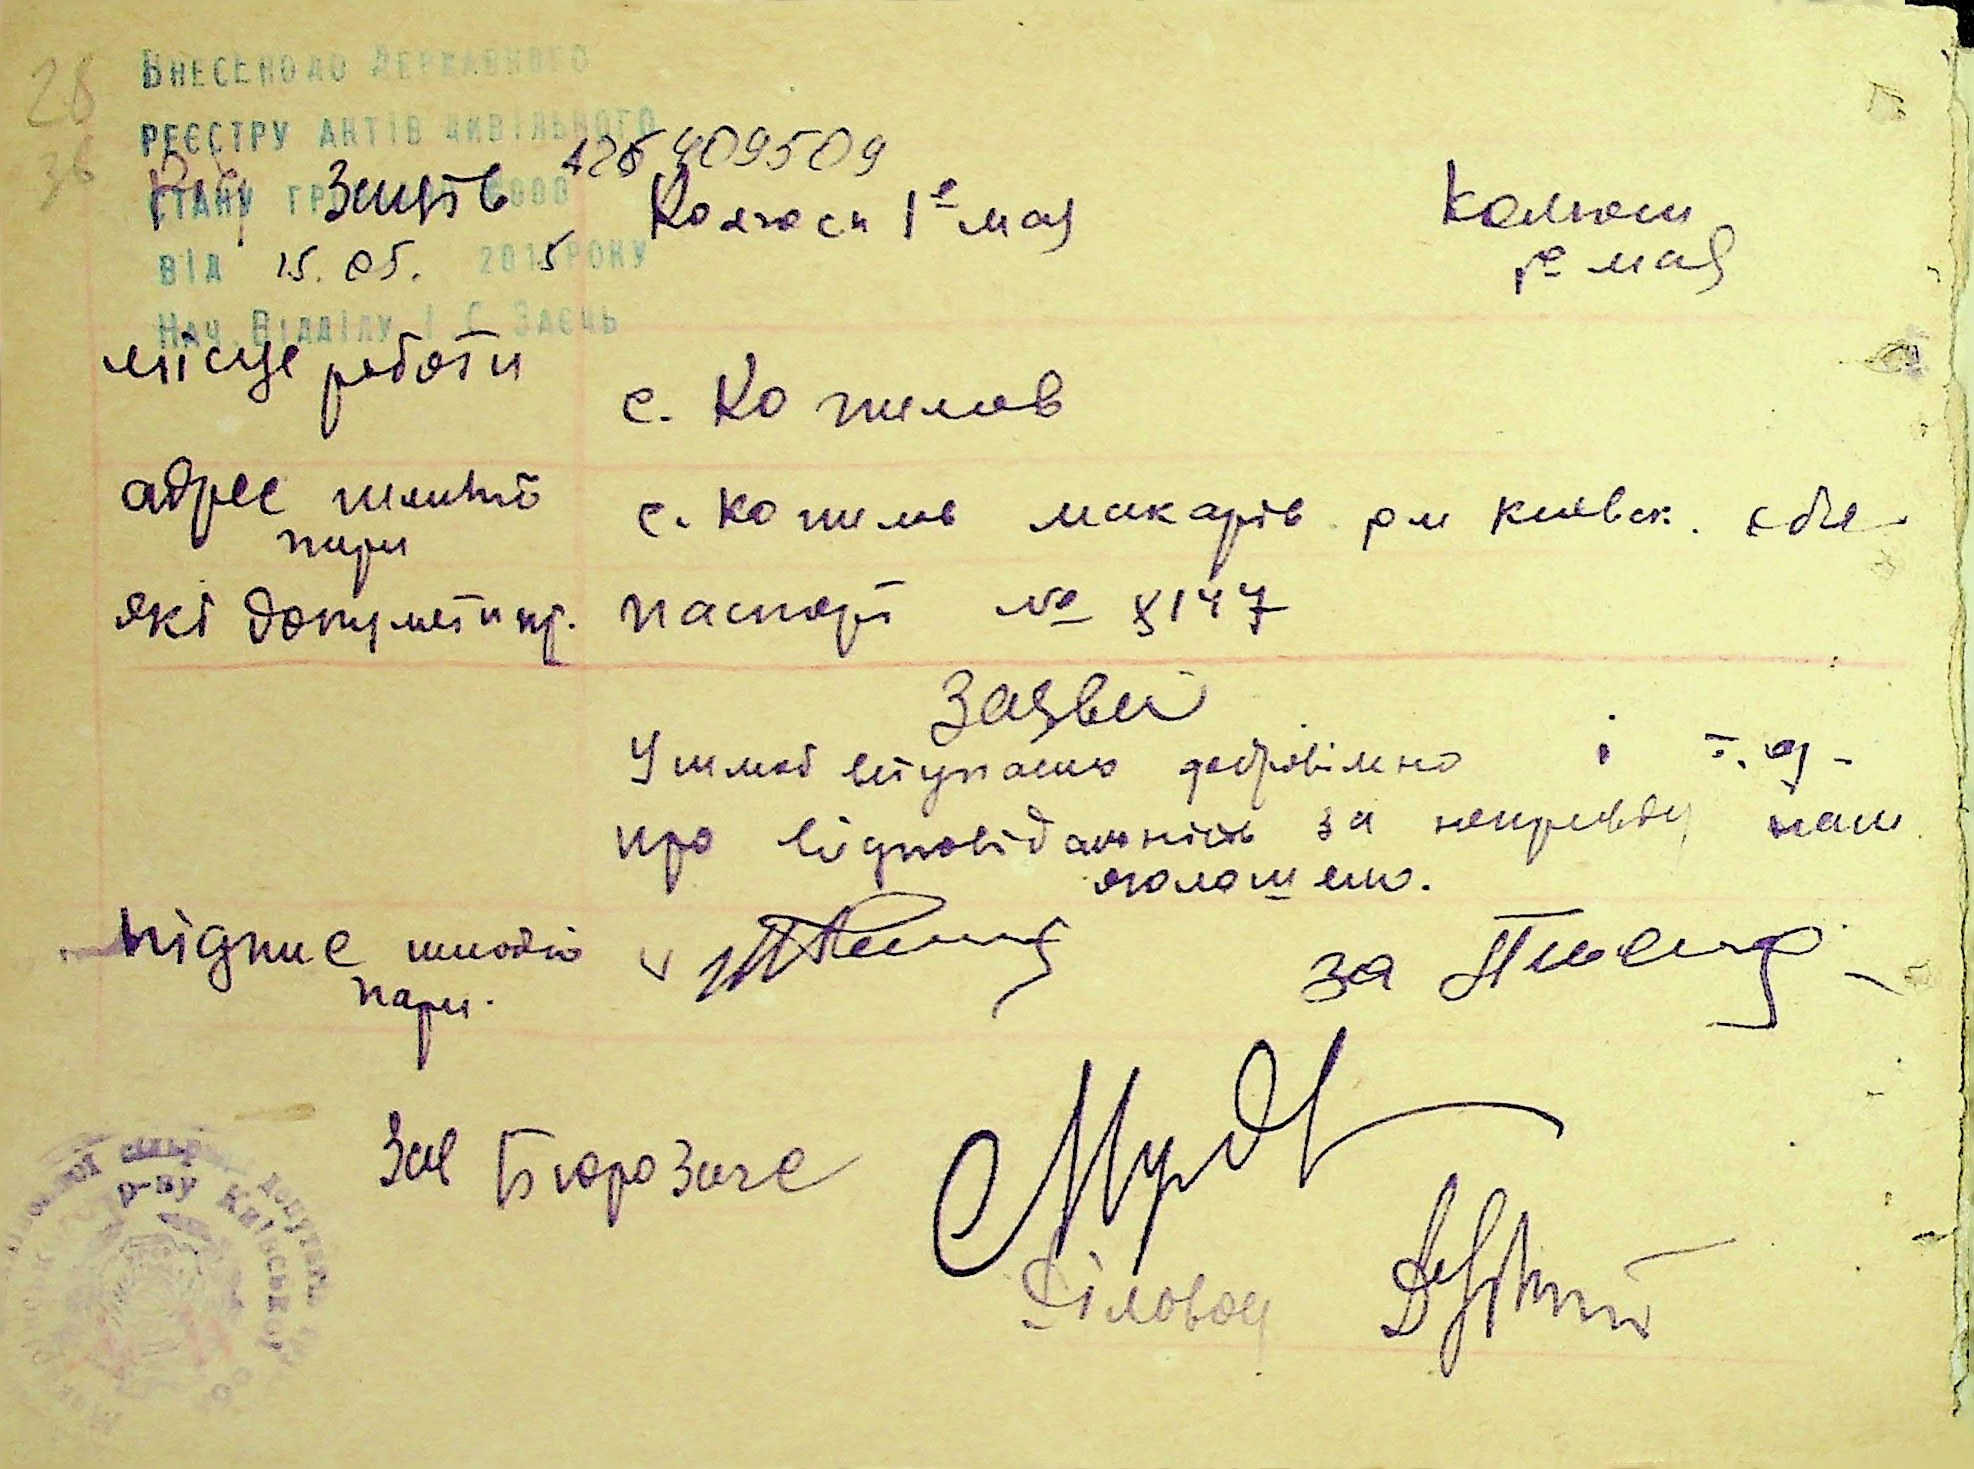 28
36
Внесено до Державного
реєстру актів цивільного
стану гр
від 15.05. 2015 року
Нач. Відділу І Г Заєць
409509
Колгосп 1е мая
Колгосп
1е мая
місце роботи
с. Копилов
адрес шлюбної
пари
с. Копилов макарів. р-м Києвск. обл.
які документи пр.
паспорт № 8147
Заяви
У шлюб вступаємо добровільно і т.д.
про відповідальність за неправду нам
оголошено.
підпис шлюбної
пари.
за
Зав Бюро Загс
Діловод
сільради депутатів
р-ну Київської